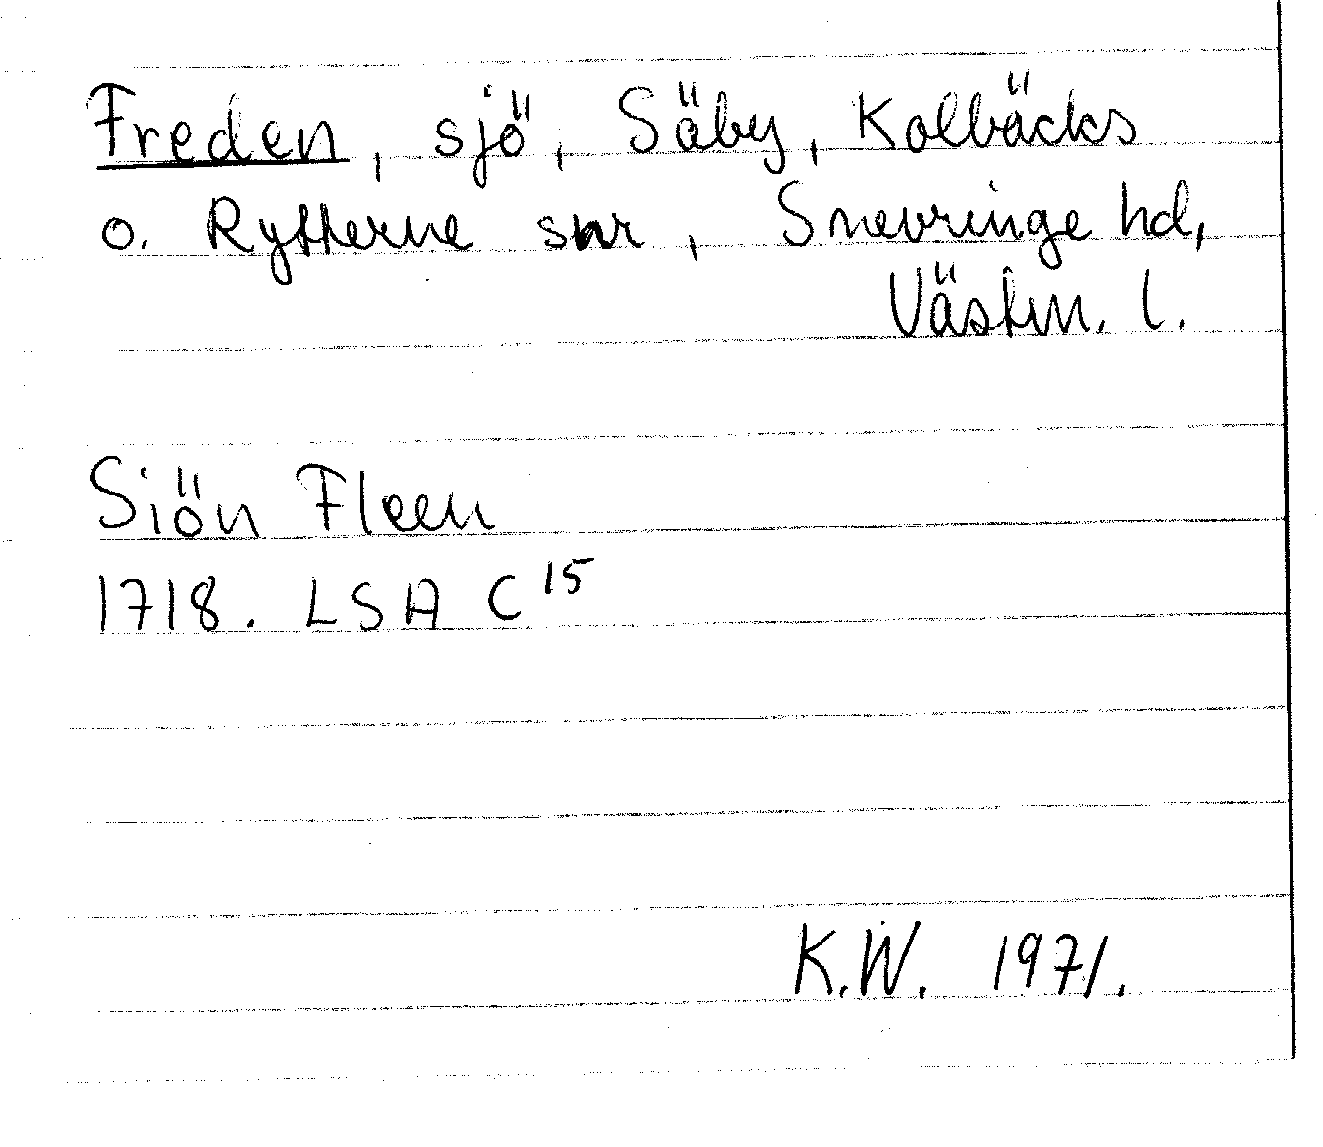 Freden, sjö, Säby, Kolbäcks
o. Rytterne snr, Snevringe hd,
Västm. l.
Siön Fleen
1718. LSA C 15
K.W. 1971.